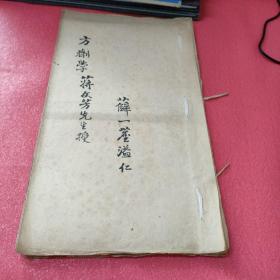 方劑學 蔣文芳先生授
薛一溢仁